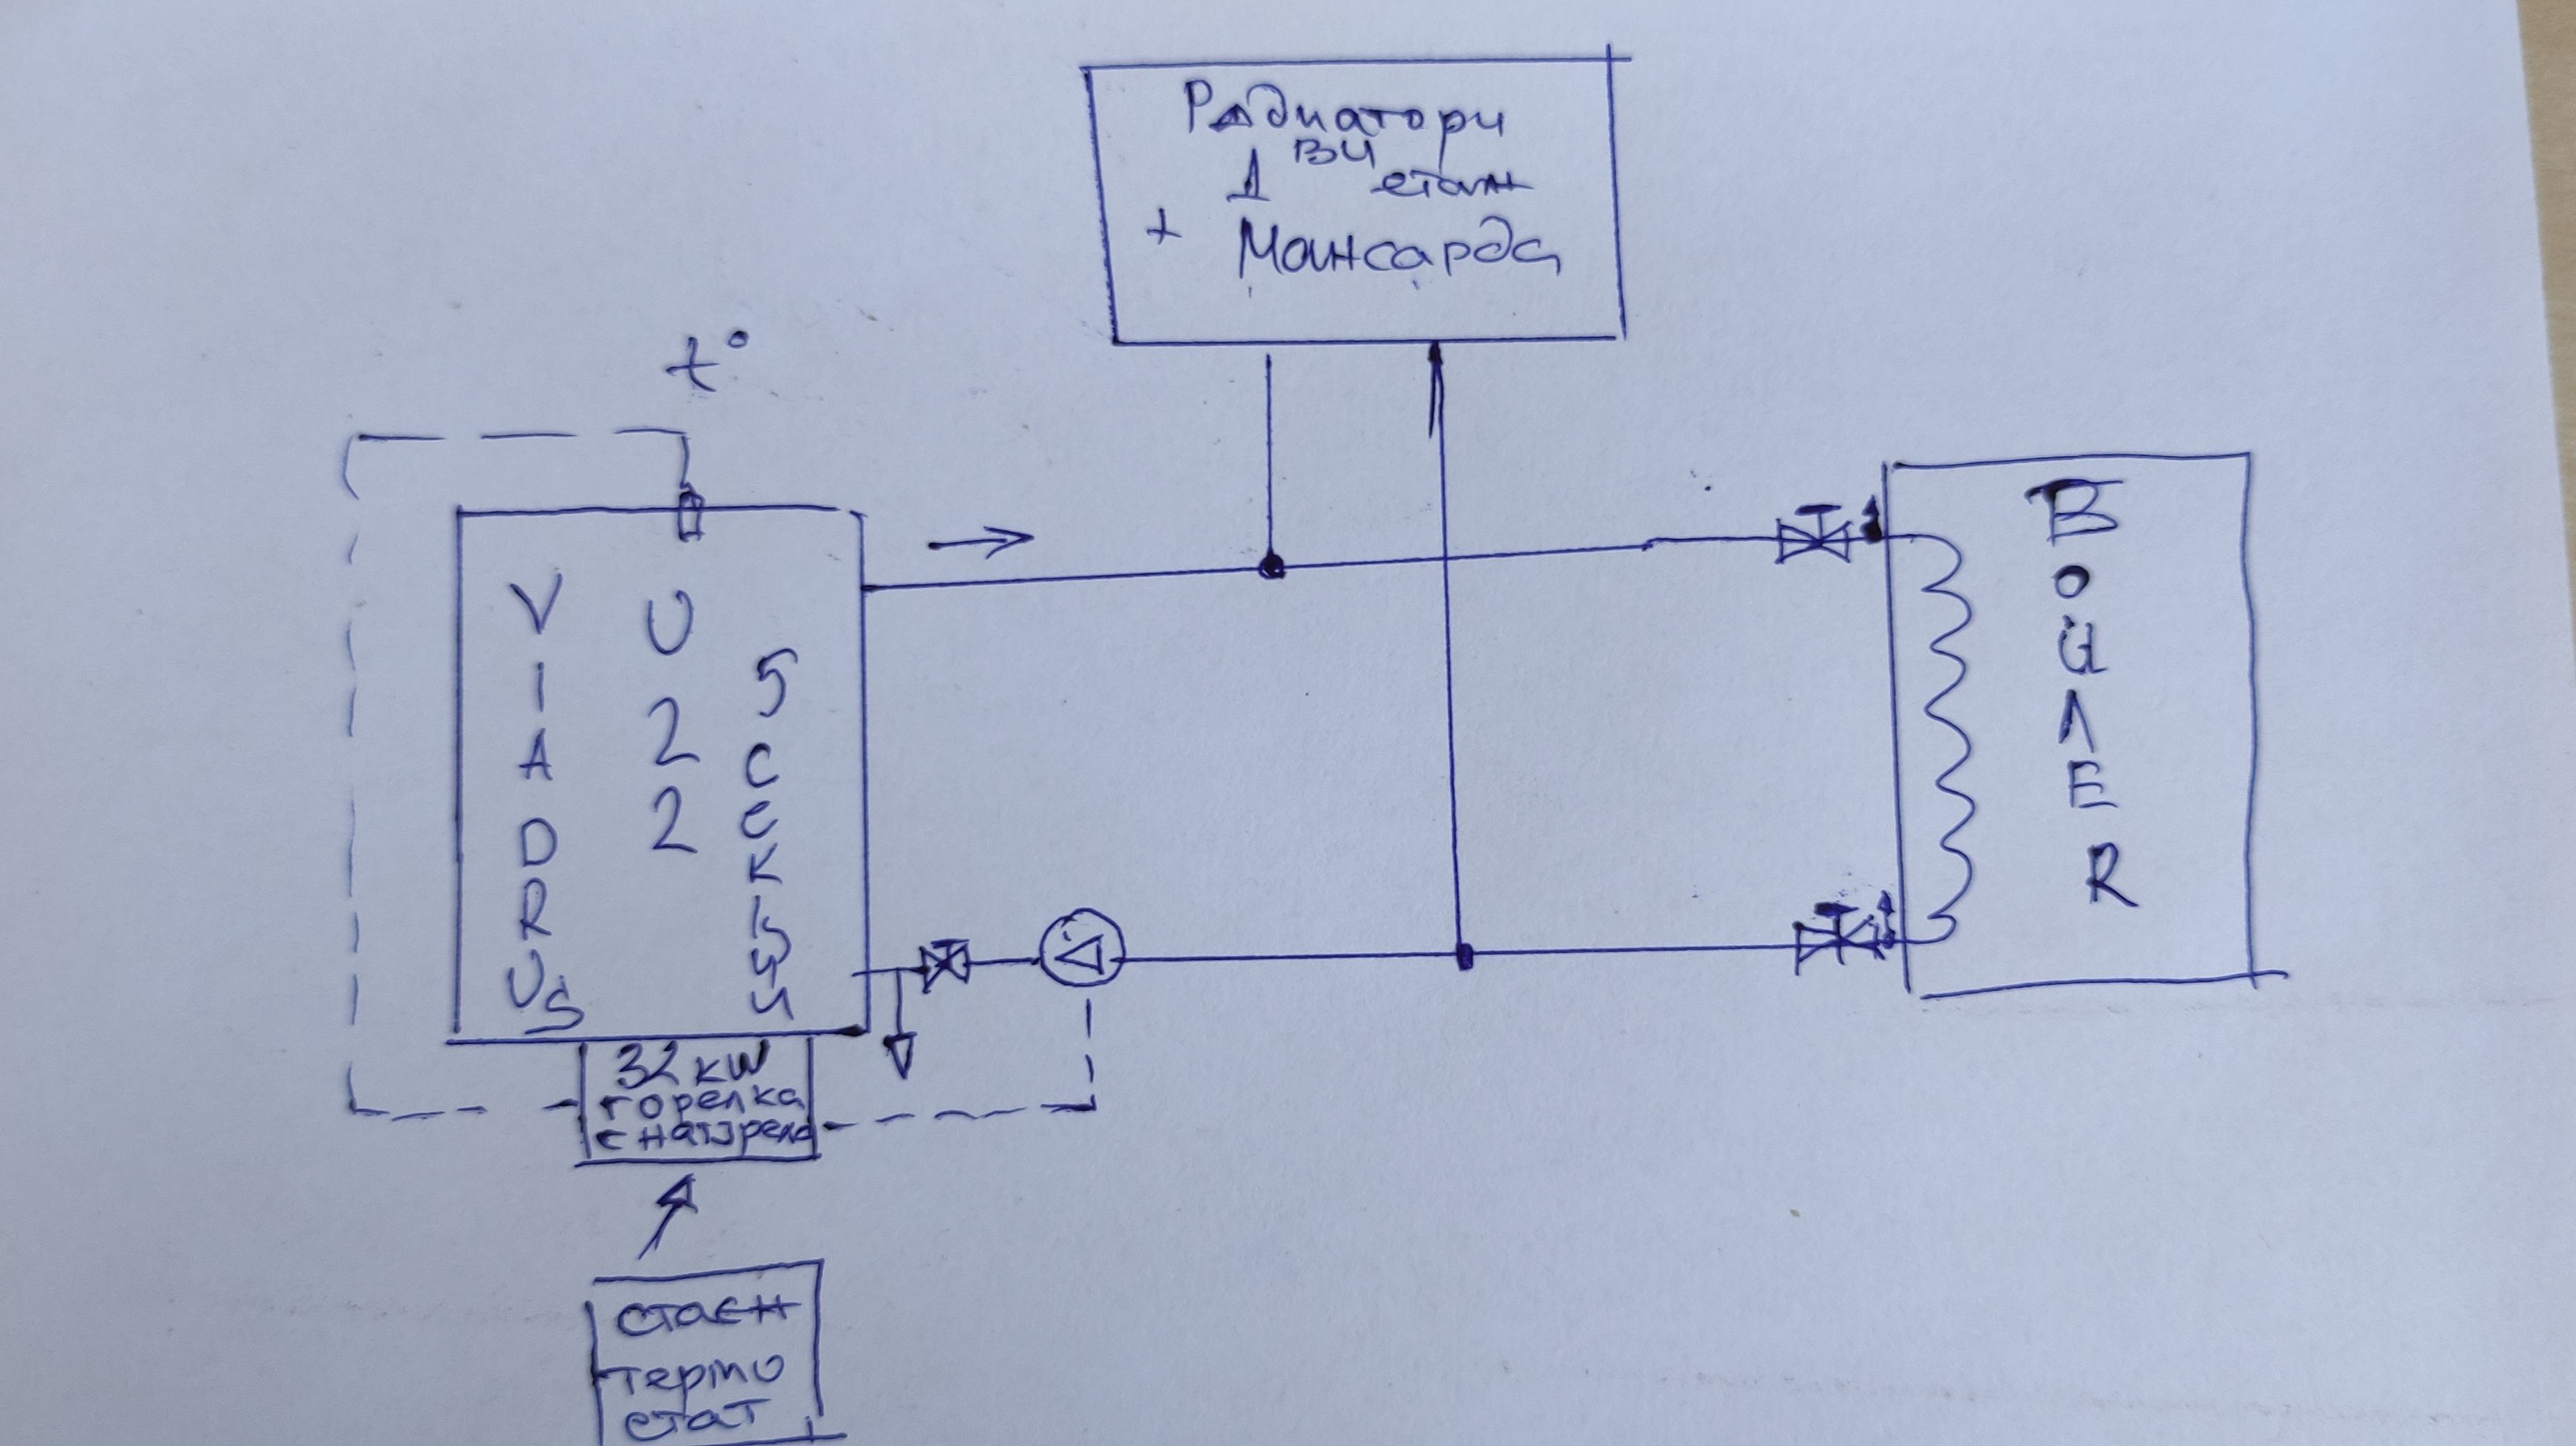 Радиатори
1 ви етаж
+ Мансарда
t°
VIADRUS
U22
5 секции
БОЙЛЕR
32 kW
горелка
стаен
термо
стат